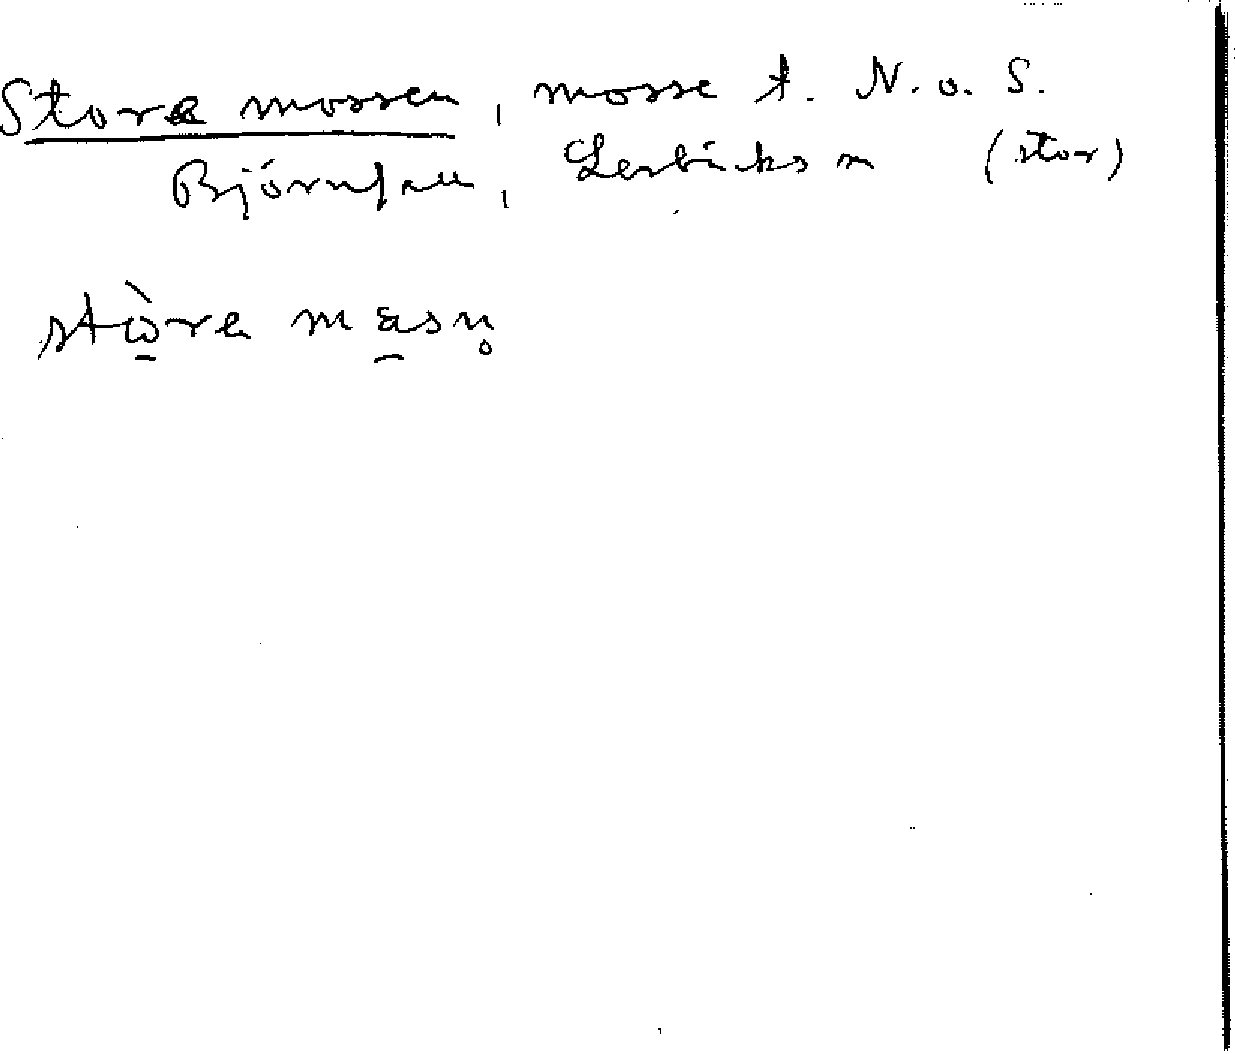 Stora mossen, mosse t. N. o. S.
Björnfall, Lerbäcks sn (stor)
stὼra måsn̥